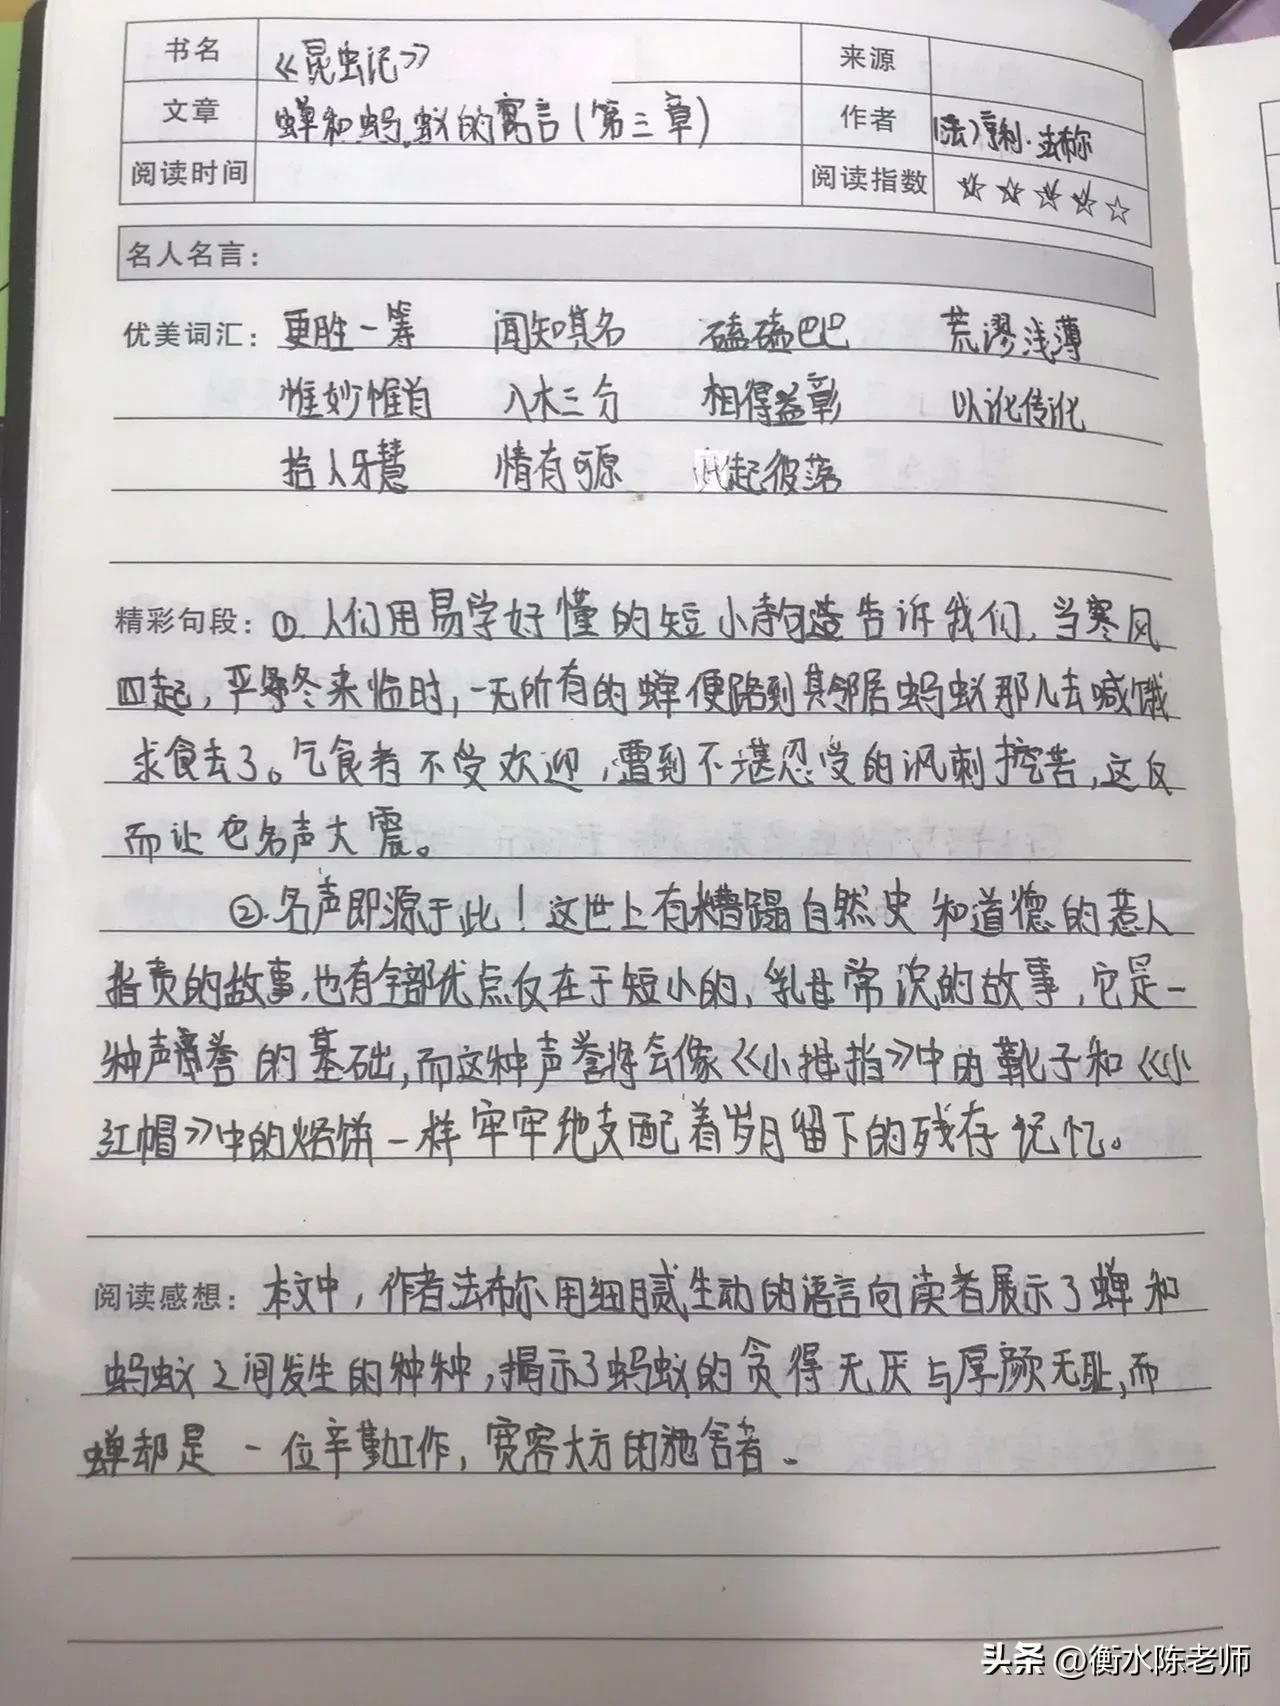 书名 《昆虫记》 来源
文章 蝉和蚂蚁的寓言(第三章) 作者 (法)亨利·法布尔
阅读时间 阅读指数 ☆☆☆☆☆
名人名言:
优美词汇: 更胜一筹 闻知其名 磕磕巴巴 荒谬浅薄
惟妙惟肖 入木三分 相得益彰 以讹传讹
拾人牙慧 情有可原 起彼落
精彩句段: ①.人们用易学好懂的短小韵造告诉我们,当寒风
四起,严寒冬来临时,一无所有的蝉便跑到其邻居蚂蚁那儿去喊饿
求食去了。乞食者不受欢迎,遭到不堪忍受的讽刺挖苦,这反
而让它名声大震。
②.名声即源于此!这世上有糟蹋自然史和道德的惹人
指责的故事,也有全部优点仅在于短小的,乳母常说的故事,它是一
种声誉的基础,而这种声誉将会像《小拇指》中的靴子和《小
红帽》中的烙饼一样牢牢地支配着岁月留下的残存记忆。
阅读感想: 本文中,作者法布尔用细腻生动的语言向读者展示了蝉和
蚂蚁之间发生的种种,揭示了蚂蚁的贪得无厌与厚颜无耻,而
蝉却是一位辛勤工作,宽容大方的施舍者.
头条 @衡水陈老师